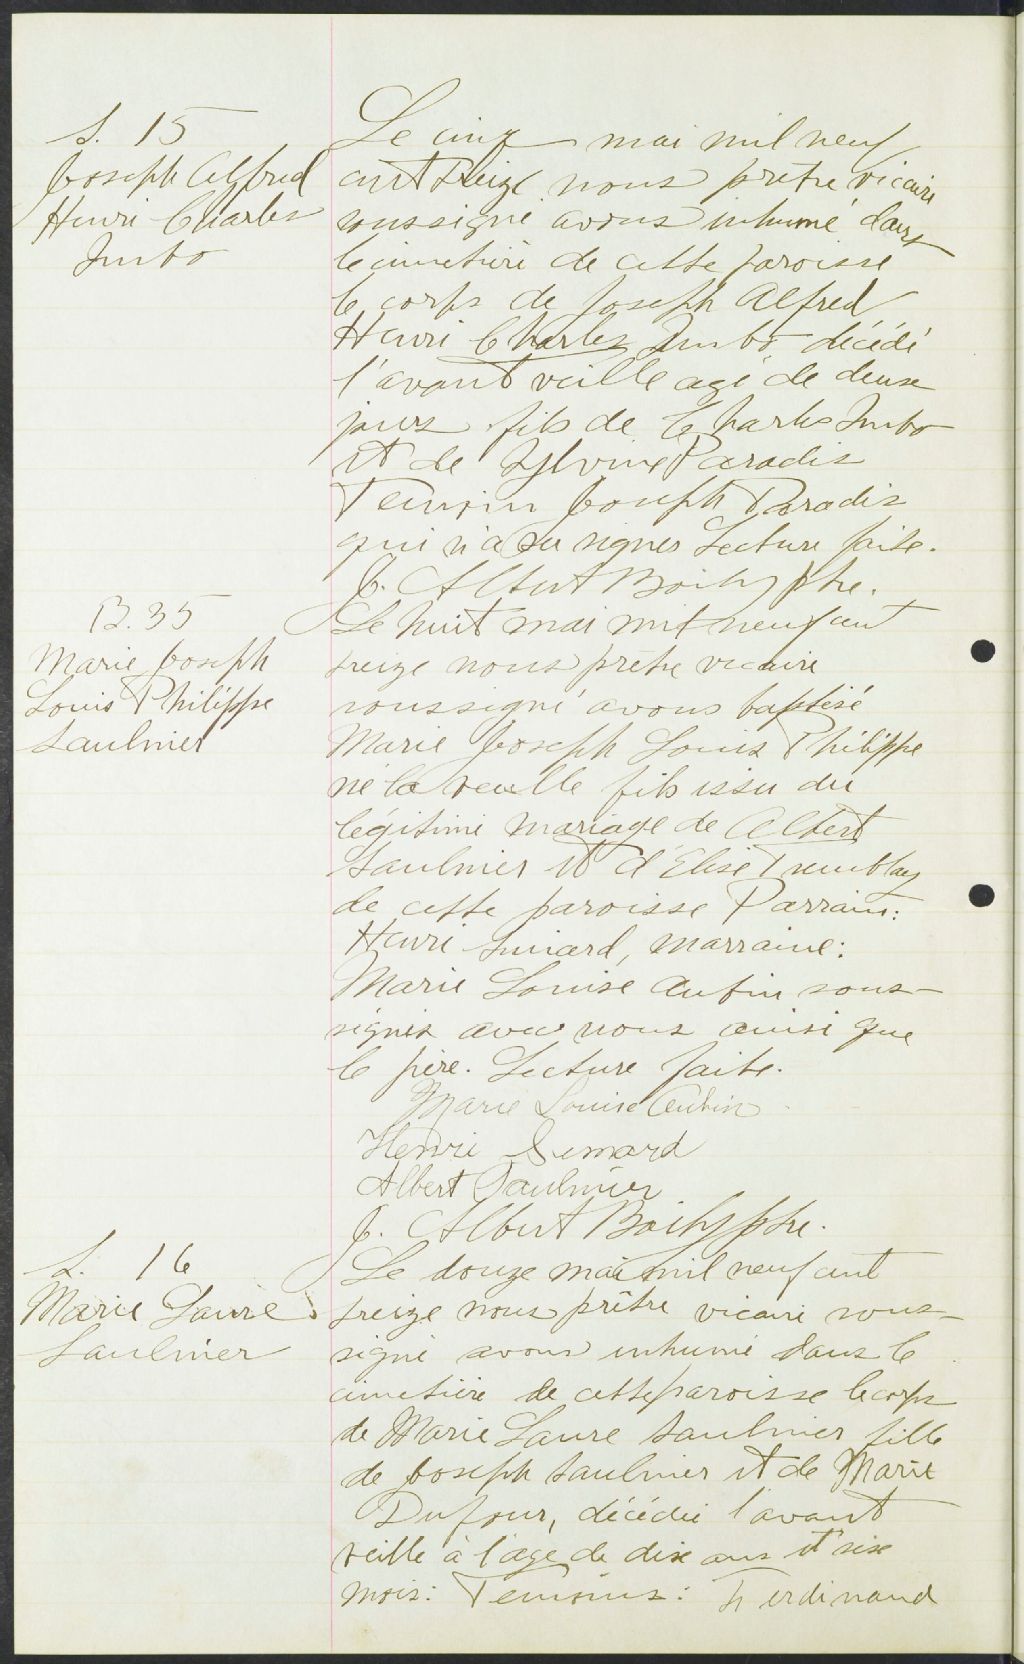 S. 15
Joseph Alfred
Henri Charles
Imbo
Le cinq mai mil neuf
cent treize nous prêtre vicaire
soussigné avons inhumé dans
le cimetière de cette paroisse
le corps de Joseph Alfred
Henri Charles Imbo décédé
l'avant veille agé de deux
jours fils de Charles Imbo
et de Sylvine Paradis
Temoin Joseph Paradis
qui n'a su signer Lecture faite.
J. Albert Boily ptre.
B. 35
Marie Joseph
Louis Philippe
Saulnier
Le huit mai mil neuf cent
treize nous prêtre vicaire
soussigné avons baptisé
Marie Joseph Louis Philippe
né la veille fils issu du
légitime mariage de Albert
Saulnier et d'Elise Tremblay
de cette paroisse Parrain:
Henri Simard, marraine:
Marie Louise Aubin sous-
signés avec nous ainsi que
le père. Lecture faite.
Marie Louise Aubin
Henri Simard
Albert Saulnier
J. Albert Boily ptre.
S. 16
Marie Laure
Saulnier
Le douze mai mil neuf cent
treize nous prêtre vicaire sous-
signé avons inhumé dans le
cimetière de cette paroisse le corps
de Marie Laure Saulnier fille
de Joseph Saulnier et de Marie
Dufour, décédée l'avant
veille à l'age de dix ans et six
mois: Temoins: Ferdinand